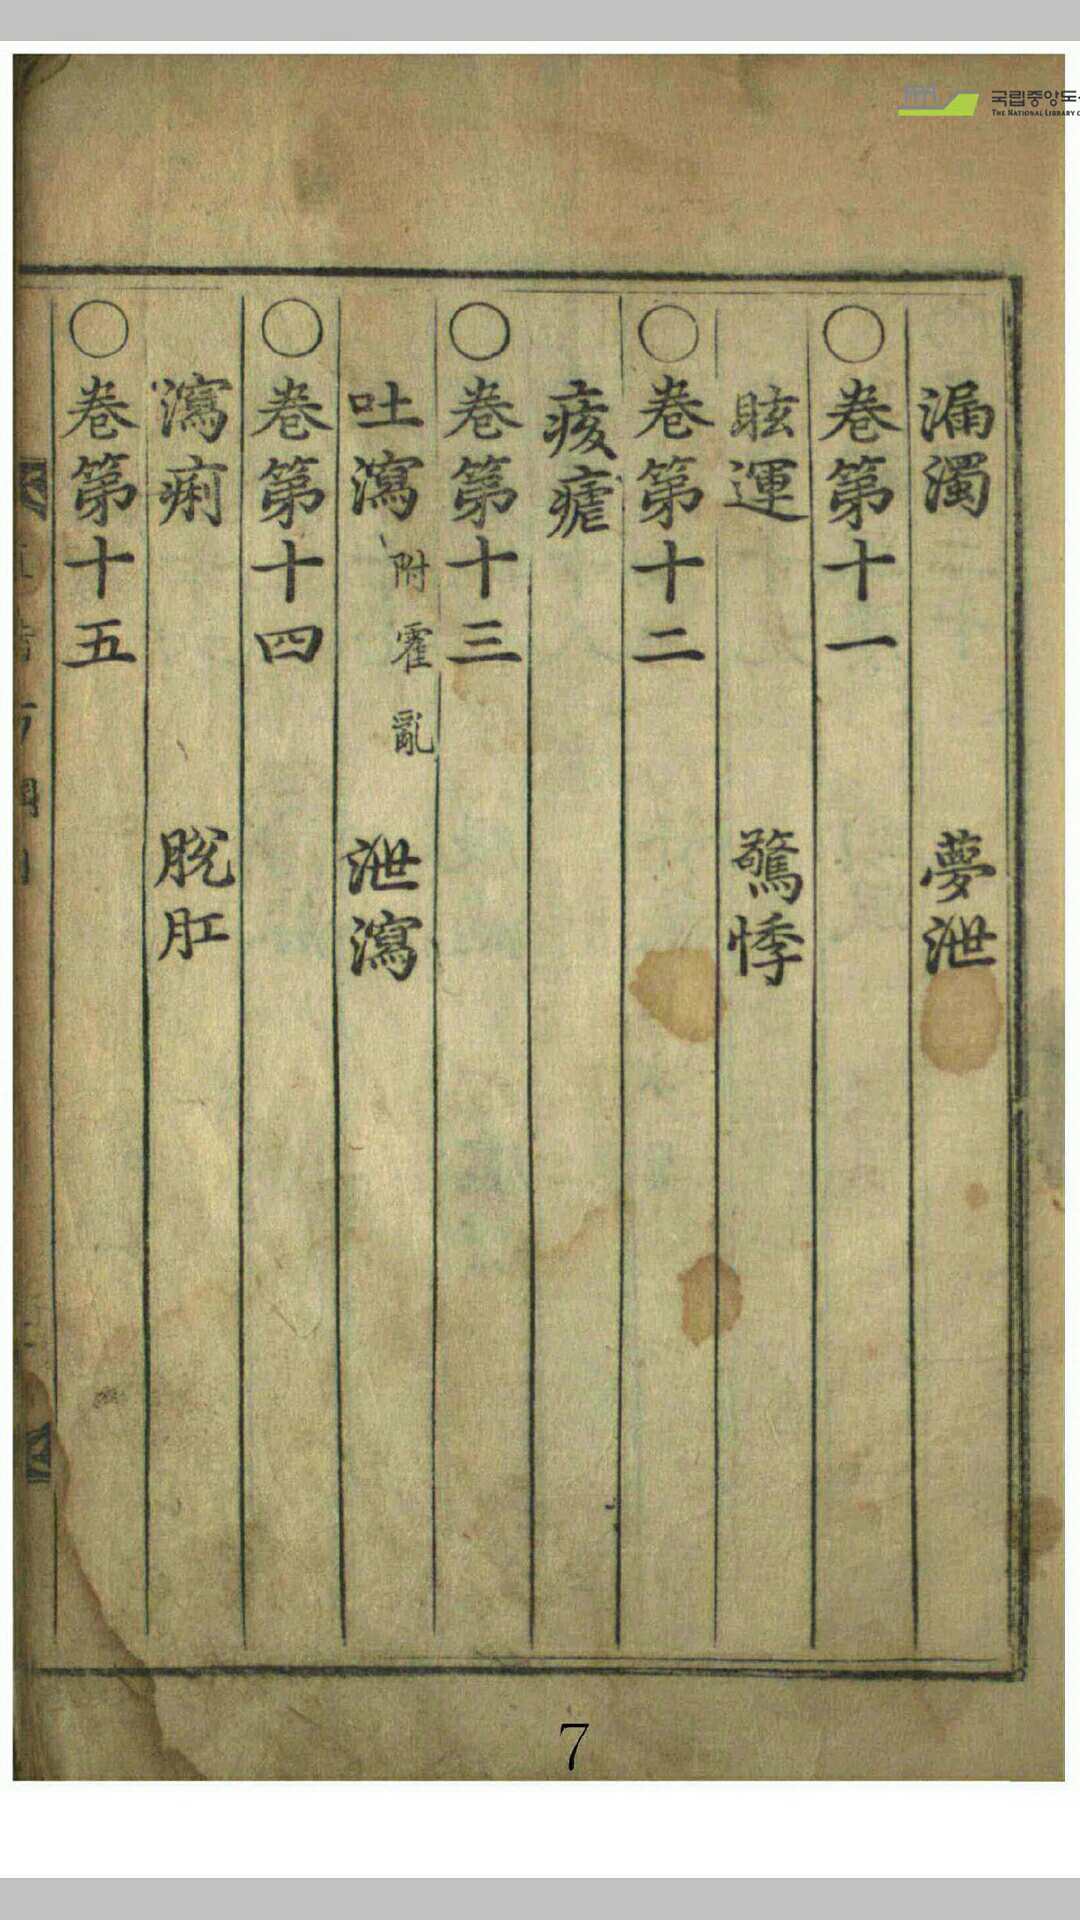 국립중앙도
THE NATIONAL LIBRARY
漏濁 夢泄
○卷第十一
眩運 驚悸
○卷第十二
痎瘧
○卷第十三
吐瀉 附霍亂 泄瀉
○卷第十四
瀉痢 脫肛
○卷第十五
7